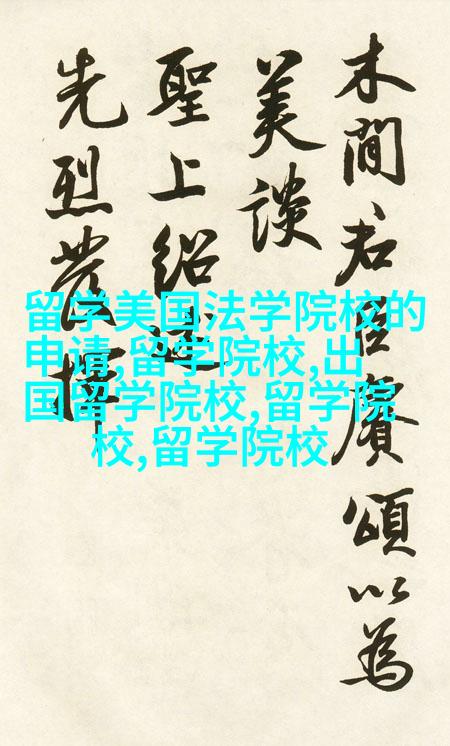 木間君臣賡頌以為
美談
聖上紹述
先烈
留学美国法学院校的
申请,留学院校,出
国留学院校,留学院
校,留学院校